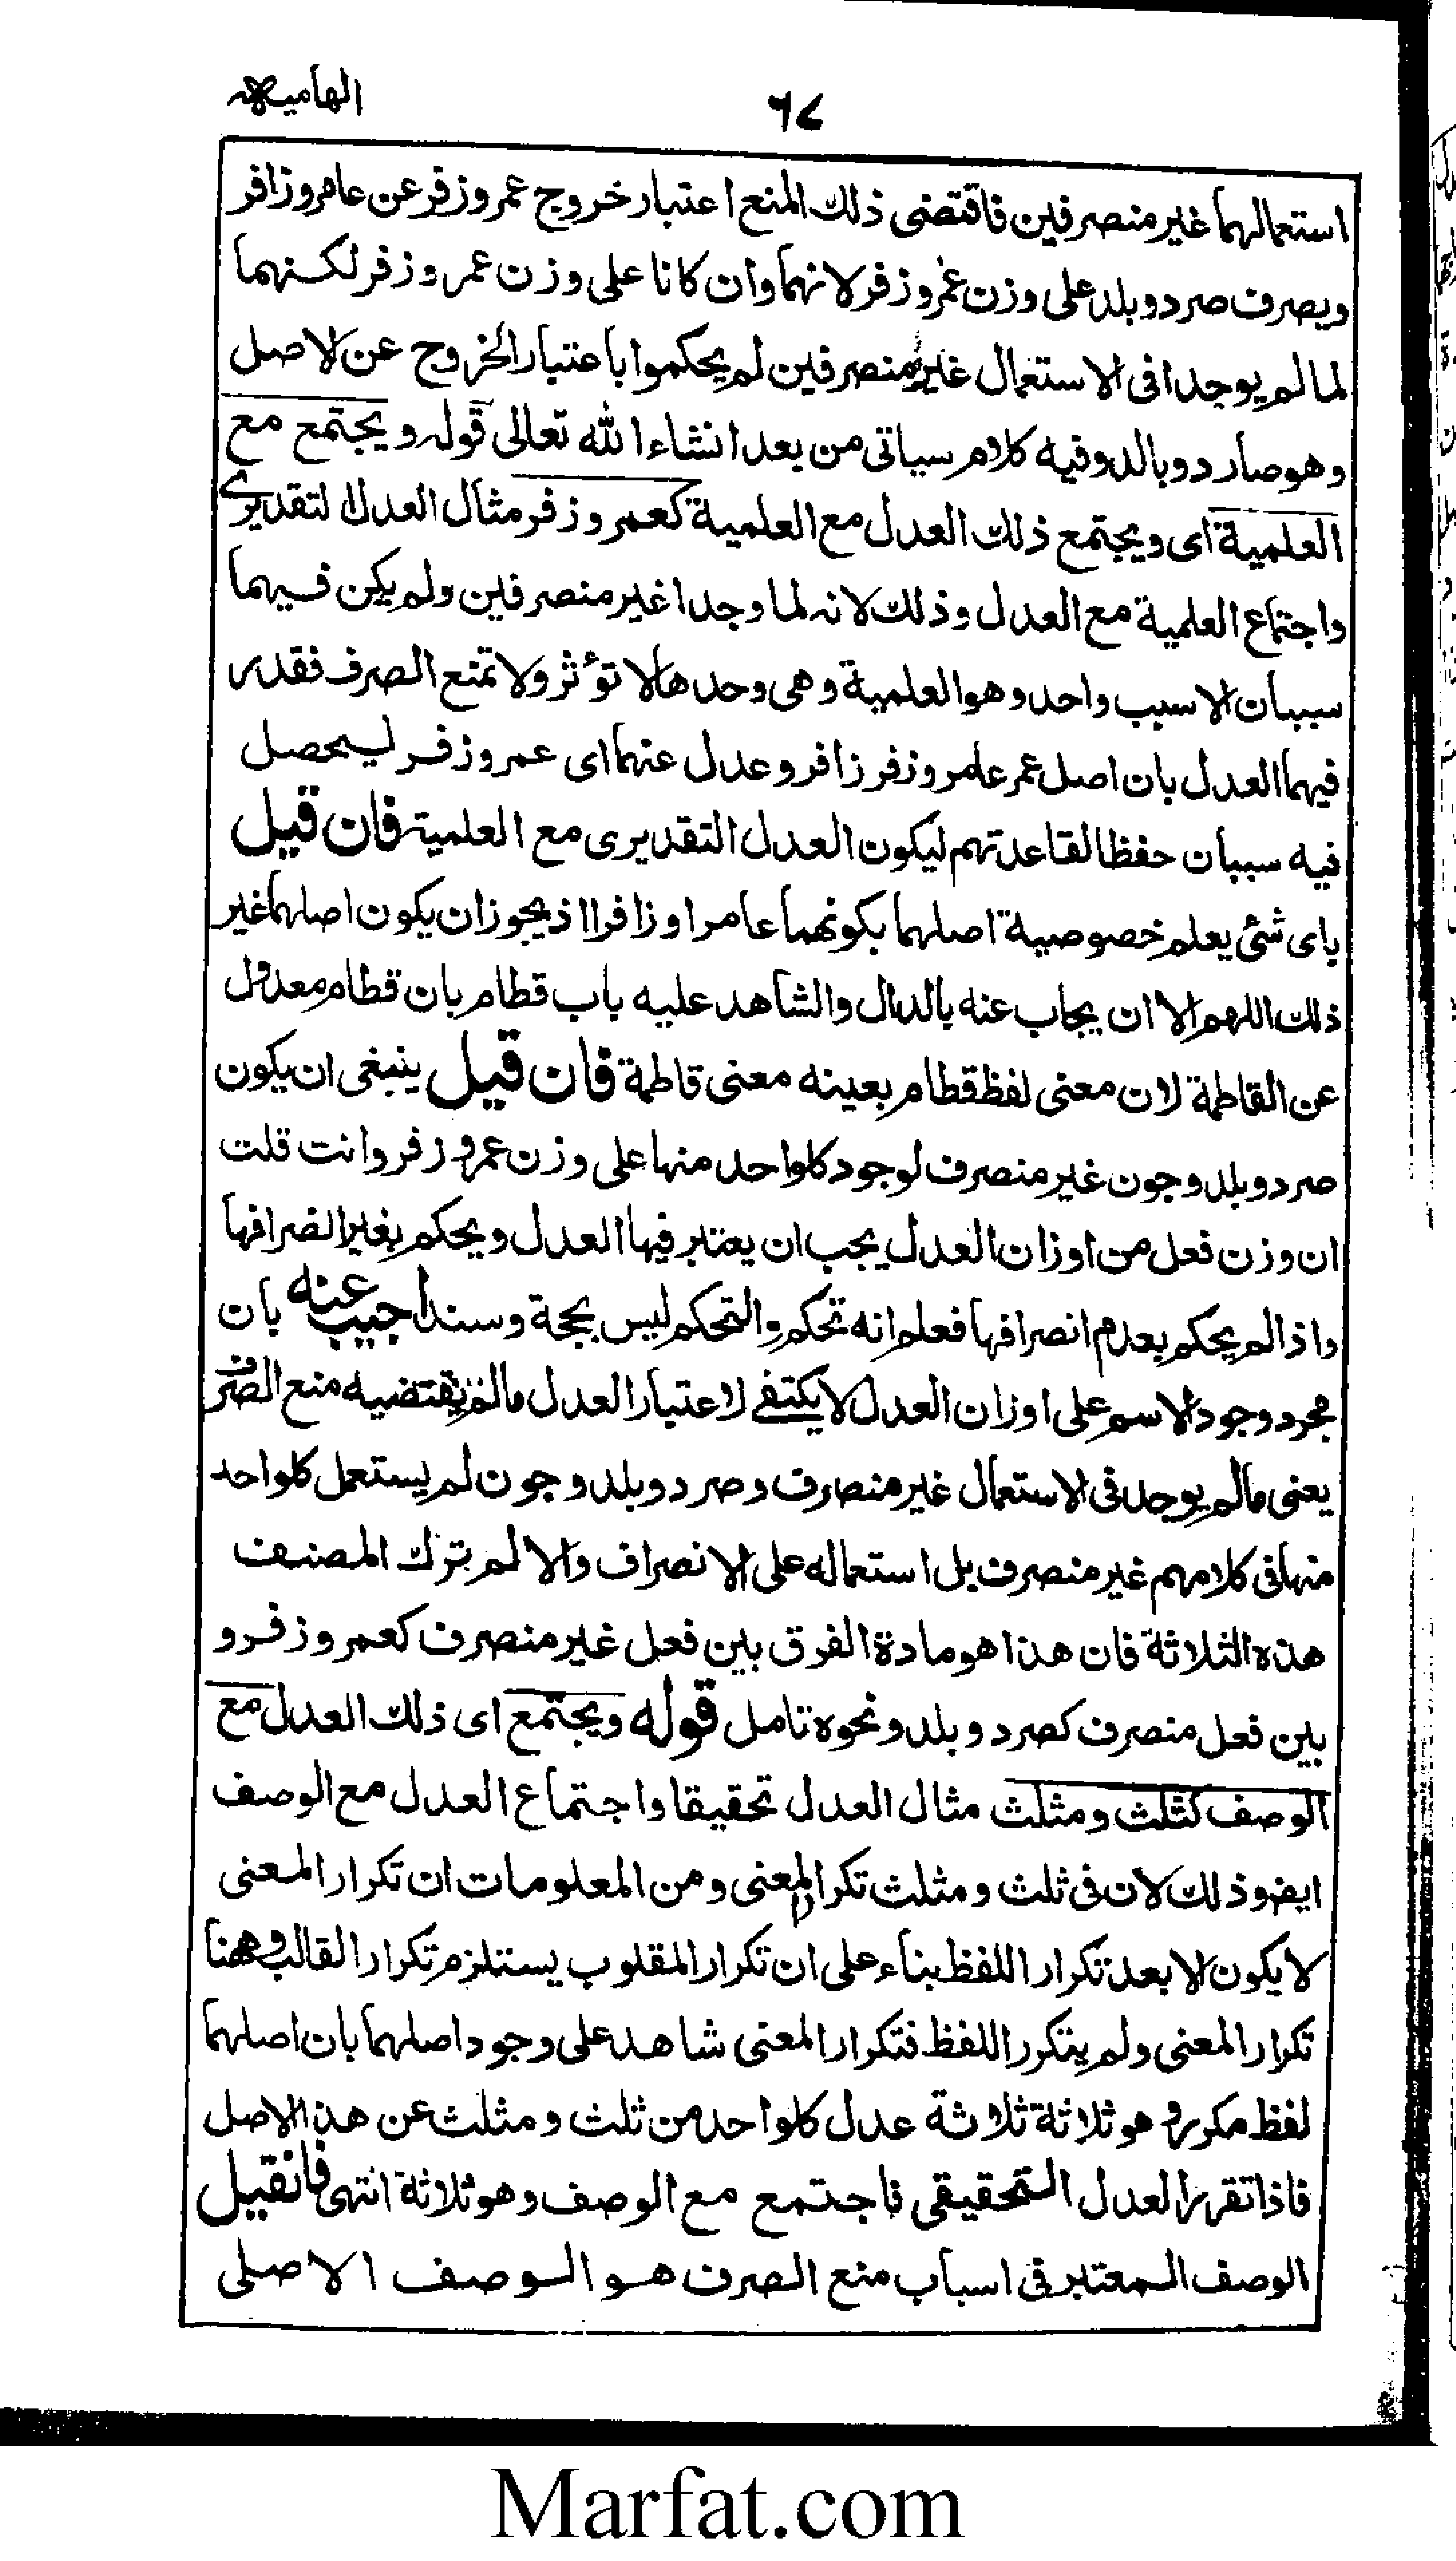 الهامیه
٦٧
استعمالهما غیر منصرفین فاقتضی ذلك المنع اعتبار خروج عمر وزفر عن عامر وزافر
ویصرف صرد وبلد علی وزن عمر وزفر لانهما وان کانا علی وزن عمر وزفر لکنهما
لما لم یوجدا فی الاستعمال غیر منصرفین لم یحکموا باعتبار الخروج عن الاصل
وهو صارد وبالد وفیه کلام سیاتی من بعد انشاء الله تعالی قوله ویجتمع مع
العلمیة ای ویجتمع ذلك العدل مع العلمیة کعمر وزفر مثال العدل التقدیری
واجتماع العلمیة مع العدل وذلك لانه لما وجدا غیر منصرفین ولم یکن فیهما
سببان الا سبب واحد وهو العلمیة وهی وحدها لا تؤثر ولا تمنع الصرف فقدر
فیهما العدل بان اصل عمر عامر وزفر زافر وعدل عنهما ای عمر وزفر لیحصل
فیه سببان حفظا لقاعدتهم لیکون العدل التقدیری مع العلمیة فان قیل
بای شئ یعلم خصوصیة اصلهما بکونهما عامرا وزافرا اذ یجوز ان یکون اصلهما غیر
ذلك اللهم الا ان یجاب عنه بالدال والشاهد علیه باب قطام بان قطام معدول
عن القاطمة لان معنی لفظ قطام بعینه معنی قاطمة فان قیل ینبغی ان یکون
صرد وبلد وجون غیر منصرف لوجود کلواحد منها علی وزن عمر وزفر وانت قلت
ان وزن فعل من اوزان العدل یجب ان یعتبر فیها العدل ویحکم بغیر انصرافها
واذا لم یحکم بعدم انصرافها فعلم انه تحکم والتحکم لیس بحجة وسند اجیب عنه بان
مجرد وجود الاسم علی اوزان العدل لا یکتفے لاعتبار العدل مالم یقتضیه منع الصرف
یعنی مالم یوجد فی الاستعمال غیر منصرف وصرد وبلد وجون لم یستعمل کلواحد
منها فی کلامهم غیر منصرف بل استعماله علی الانصراف والا لم یترك المصنف
هذه الثلاثة فان هذا هو مادة الفرق بین فعل غیر منصرف کعمر وزفر و
بین فعل منصرف کصرد وبلد ونحوه تامل قوله ویجتمع ای ذلك العدل مع
الوصف کثلث ومثلث مثال العدل تحقیقا واجتماع العدل مع الوصف
ایضا وذلك لان فی ثلث ومثلث تکرار المعنی ومن المعلومات ان تکرار المعنی
لا یکون الا بعد تکرار اللفظ بناء علی ان تکرار المقلوب یستلزم تکرار القالب وههنا
تکرار المعنی ولم یتکرر اللفظ فتکرار المعنی شاهد علی وجود اصلهما بان اصلهما
لفظ مکرر وهو ثلاثة ثلاثة عدل کلواحد من ثلث ومثلث عن هذا الاصل
فاذا تقرر العدل التحقیقی فاجتمع مع الوصف وهو ثلاثة انتهی فانقیل
الوصف المعتبر فی اسباب منع الصرف هو الوصف الاصلی
Marfat.com